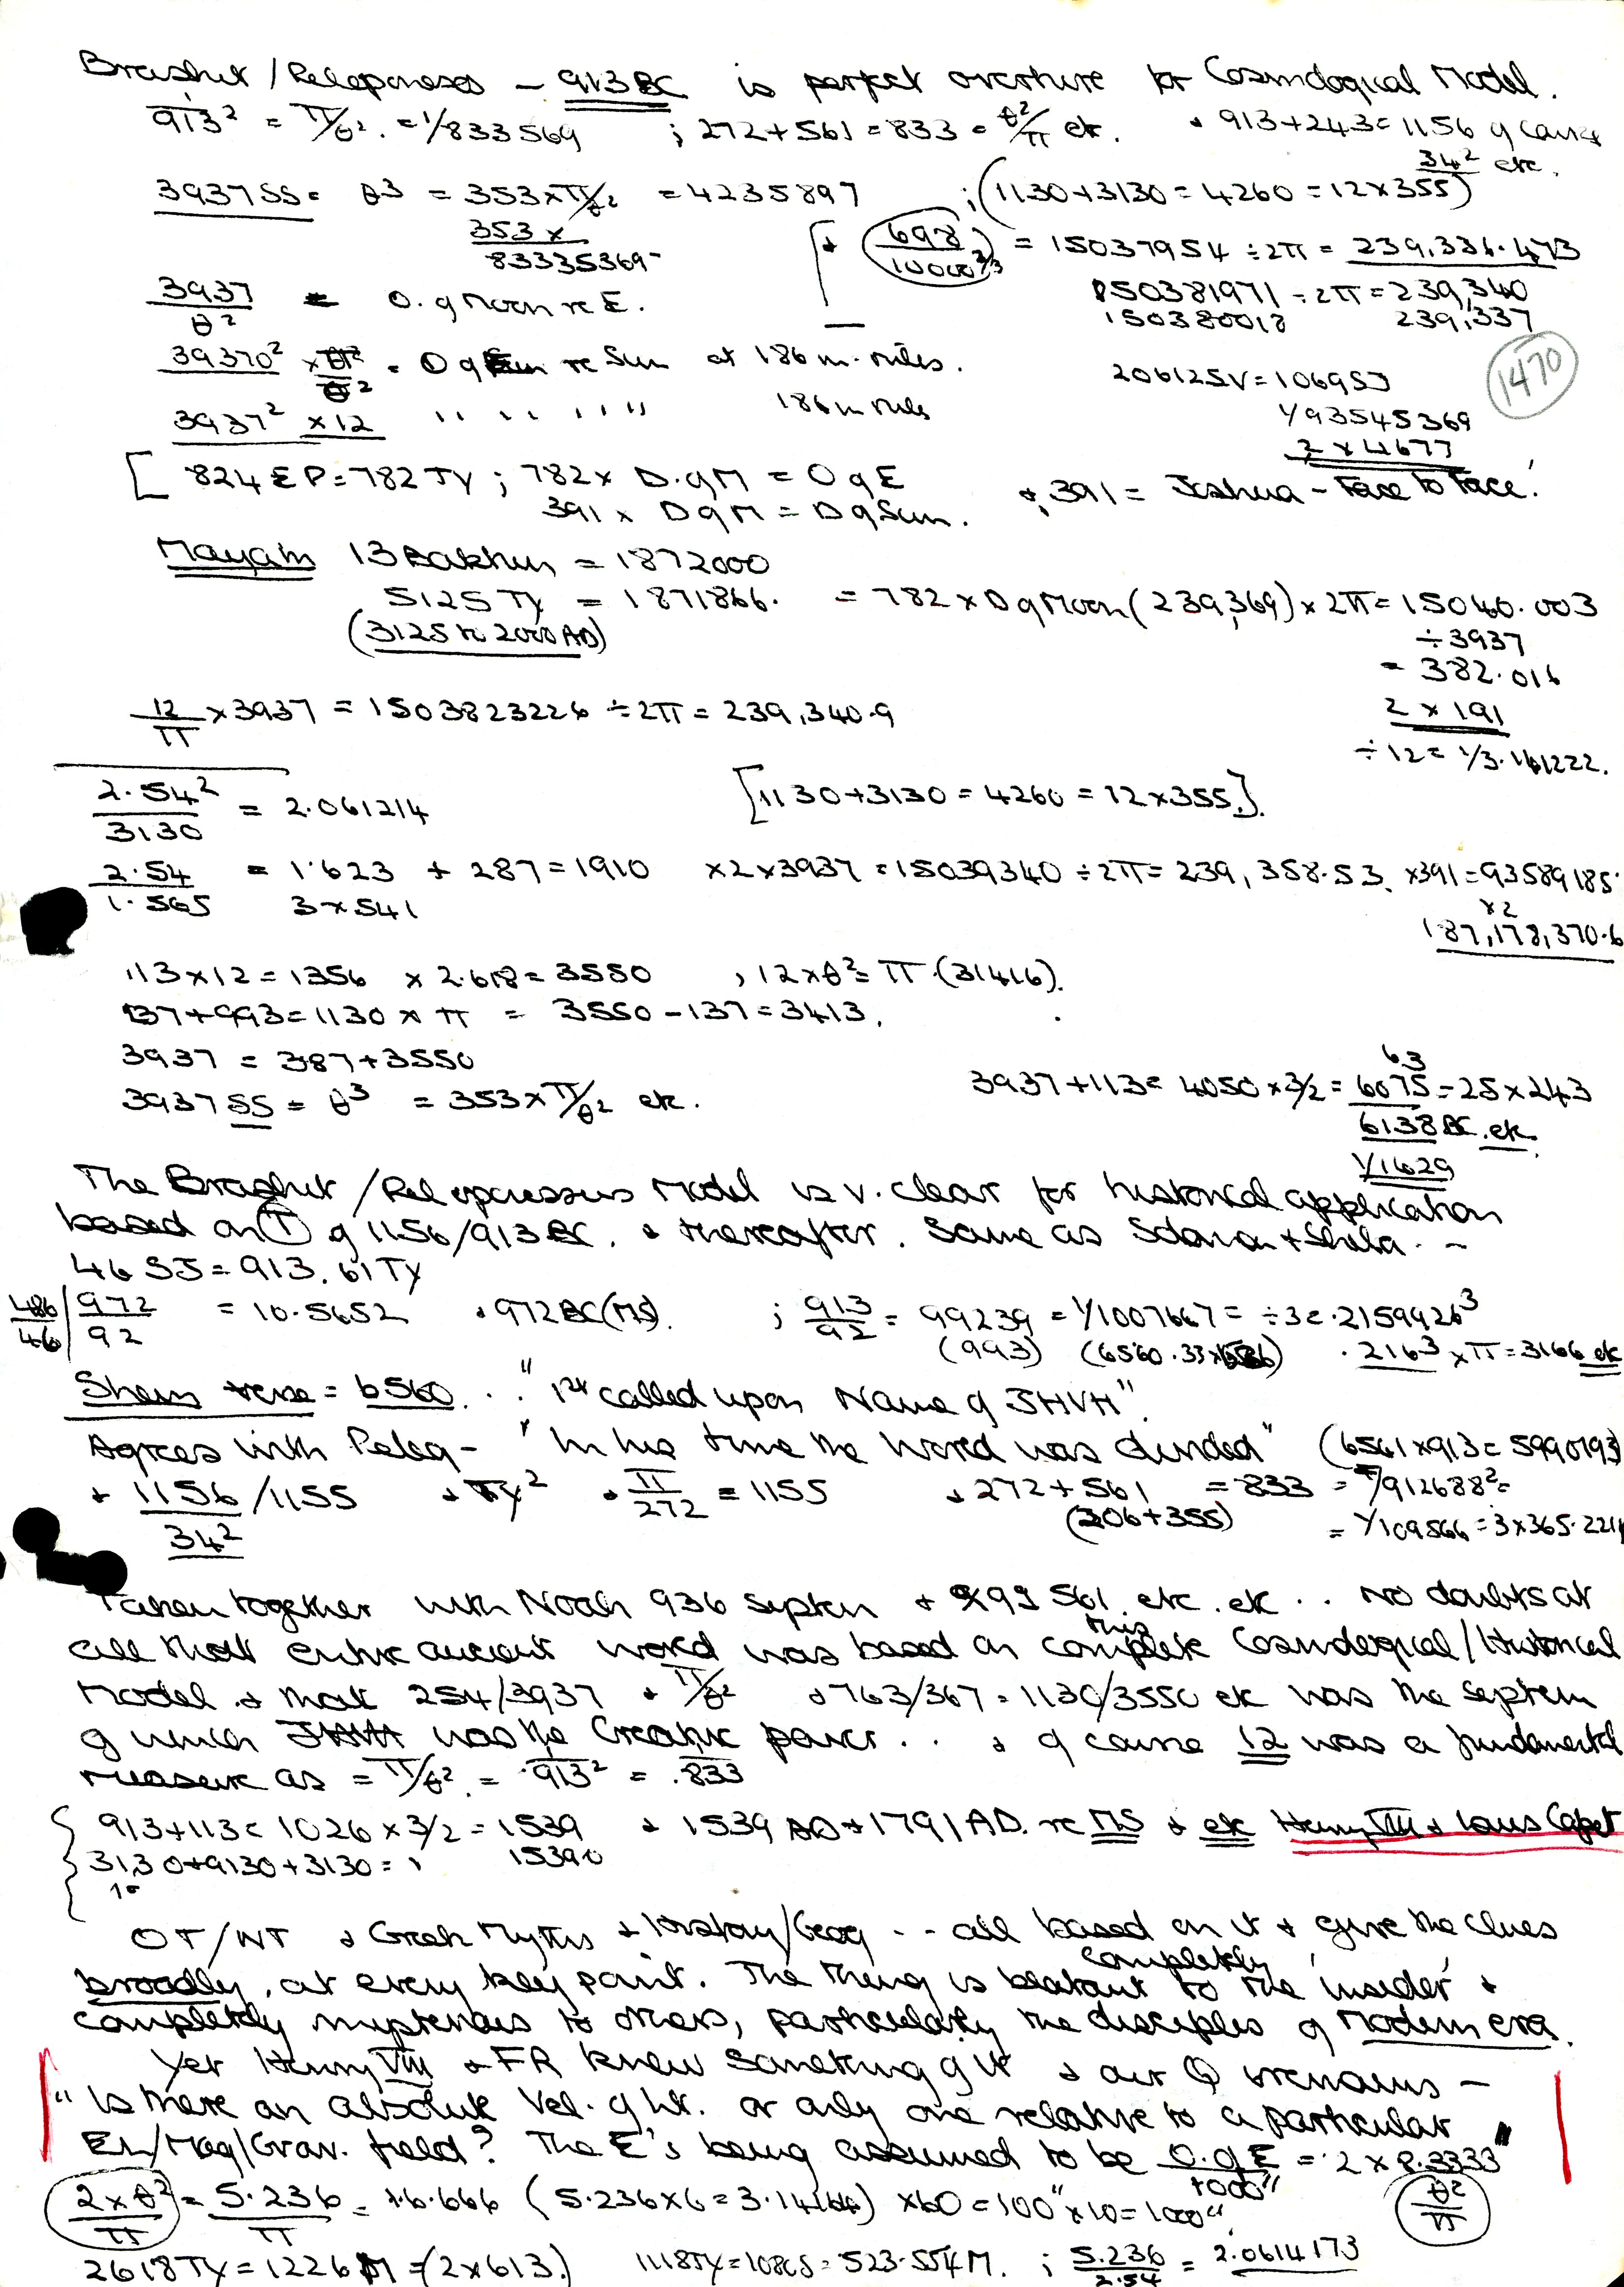 Brashit / Peloponeses – 913BC is perfect overture for Cosmological Model.
913² = π/θ². = 1/833569 ; 272+561 = 833 = θ²/π etc. + 913+243 = 1156 g
34² etc.
3937SS = θ³ = 353×π/θ² = 4235897 ; (1130+3130 = 4260 = 12×355)
353 ×
83335369
+ 698/10000 = 15037954 ÷2π = 239,336.473
150381971 ÷2π = 239,340
150380018 239,337
3937/θ² = O.g Moon re E.
39370² × = O g re Sun at 186 m. miles.
3937² ×12 '' '' '' '' 186 m miles
206125V = 1069SJ
1/93545369
2 × 4677
1470
[ 824 EP = 782TY ; 782× D.gM = O g E
391 × D g M = D g Sun. + 391 = Joshua – Face to Face!
Mayan 13 Baktun = 1872000
5125 TY = 1871866. = 782 × D g Moon (239,369) × 2π = 15040.003
(3125 to 2000AD)
÷ 3937
= 382.016
2 × 191
÷ 12 = 1/3.141222.
12/π × 3937 = 1503823226 ÷2π = 239,340.9
2.54²/3130 = 2.061214 [1130+3130 = 4260 = 12×355.]
2.54/1.565 = 1.623 + 287 = 1910 ×2×3937 = 15039340 ÷2π = 239,358.53. ×391 = 93589185.
3×541
×2
187,178,370.6
113×12 = 1356 × 2.618 = 3550 , 12×θ² = π (31416).
137+993 = 1130 × π = 3550 – 137 = 3413.
3937 = 387+3550
3937SS = θ³ = 353×π/θ² etc.
3937+113 = 4050 × 3/2 = 6075 = 25×243
63
6138BC. etc
1/1629
The Brashit / Model is v. clear for historical application
based on T g 1156/913BC. + thereafter. Same as Solomon + Sheba. –
46SJ = 913.61TY
486/46 | 972/92 = 10.5652 + 972BC (MS). ; 913/92 = 99239 = 1/1007667 = ÷ 3 = .2159926³
(993) .216³ × π = 3166 etc
Shem = 6560. . "1st called upon Name g JHVH".
Agrees with Peleg – "In his time the World was divided" (6561×913 = 5990193)
+ 1156/1155 + TY² + π/272 = 1155 + 272+561 = 833 = 1/912688² =
34² (206+355) = 1/109566 = 3×365.221
Taken together with Noah 936 septen + 561. etc. etc. . . No doubts at
all that entire ancient world was based on this complete Cosmological/Historical
Model + that 254/3937 + π/θ² + 763/367 = 1130/3550 etc was the septem
g which JHVH was the Creative power. . . + g course 12 was a fundamental
measure as = π/θ². = .913² = .833
913+113 = 1026 × 3/2 = 1539 + 1539 AD + 1791AD. re MS + etc Henry VIII + Louis Capet
3130+9130+3130 = 15390
OT/NT + Greek Myths + History/Geog - - all based on it + give the clues
broadly, at every key point. The thing is completely blatant to the 'insider' +
completely mysterious to others, particularly the disciples g Modern era.
Yet Henry VIII + FR knew something g it + our Q remains –
"Is there an absolute Vel. g Lt. or only one relative to a particular
El/Mag/Grav. field? The E's being assumed to be O.gE/1000" = 2 × 8.3333"
2×θ²/π = 5.236/π = 1.6.666 (5.236×6 = 3.1416) ×60 = 100" ×10 = 1000" θ²/π
2618TY = 1226M = (2×613.) 1118TY = = 523.554M. ; 5.236/2.54 = 2.0614173